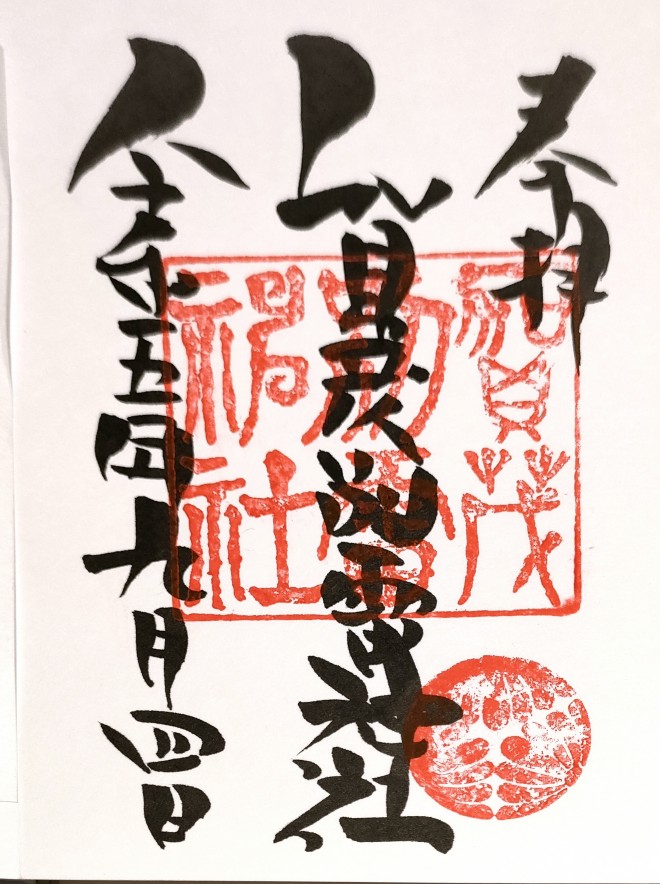 奉拝
上賀茂別雷神社
令和五年九月四日
賀茂
別雷
神社